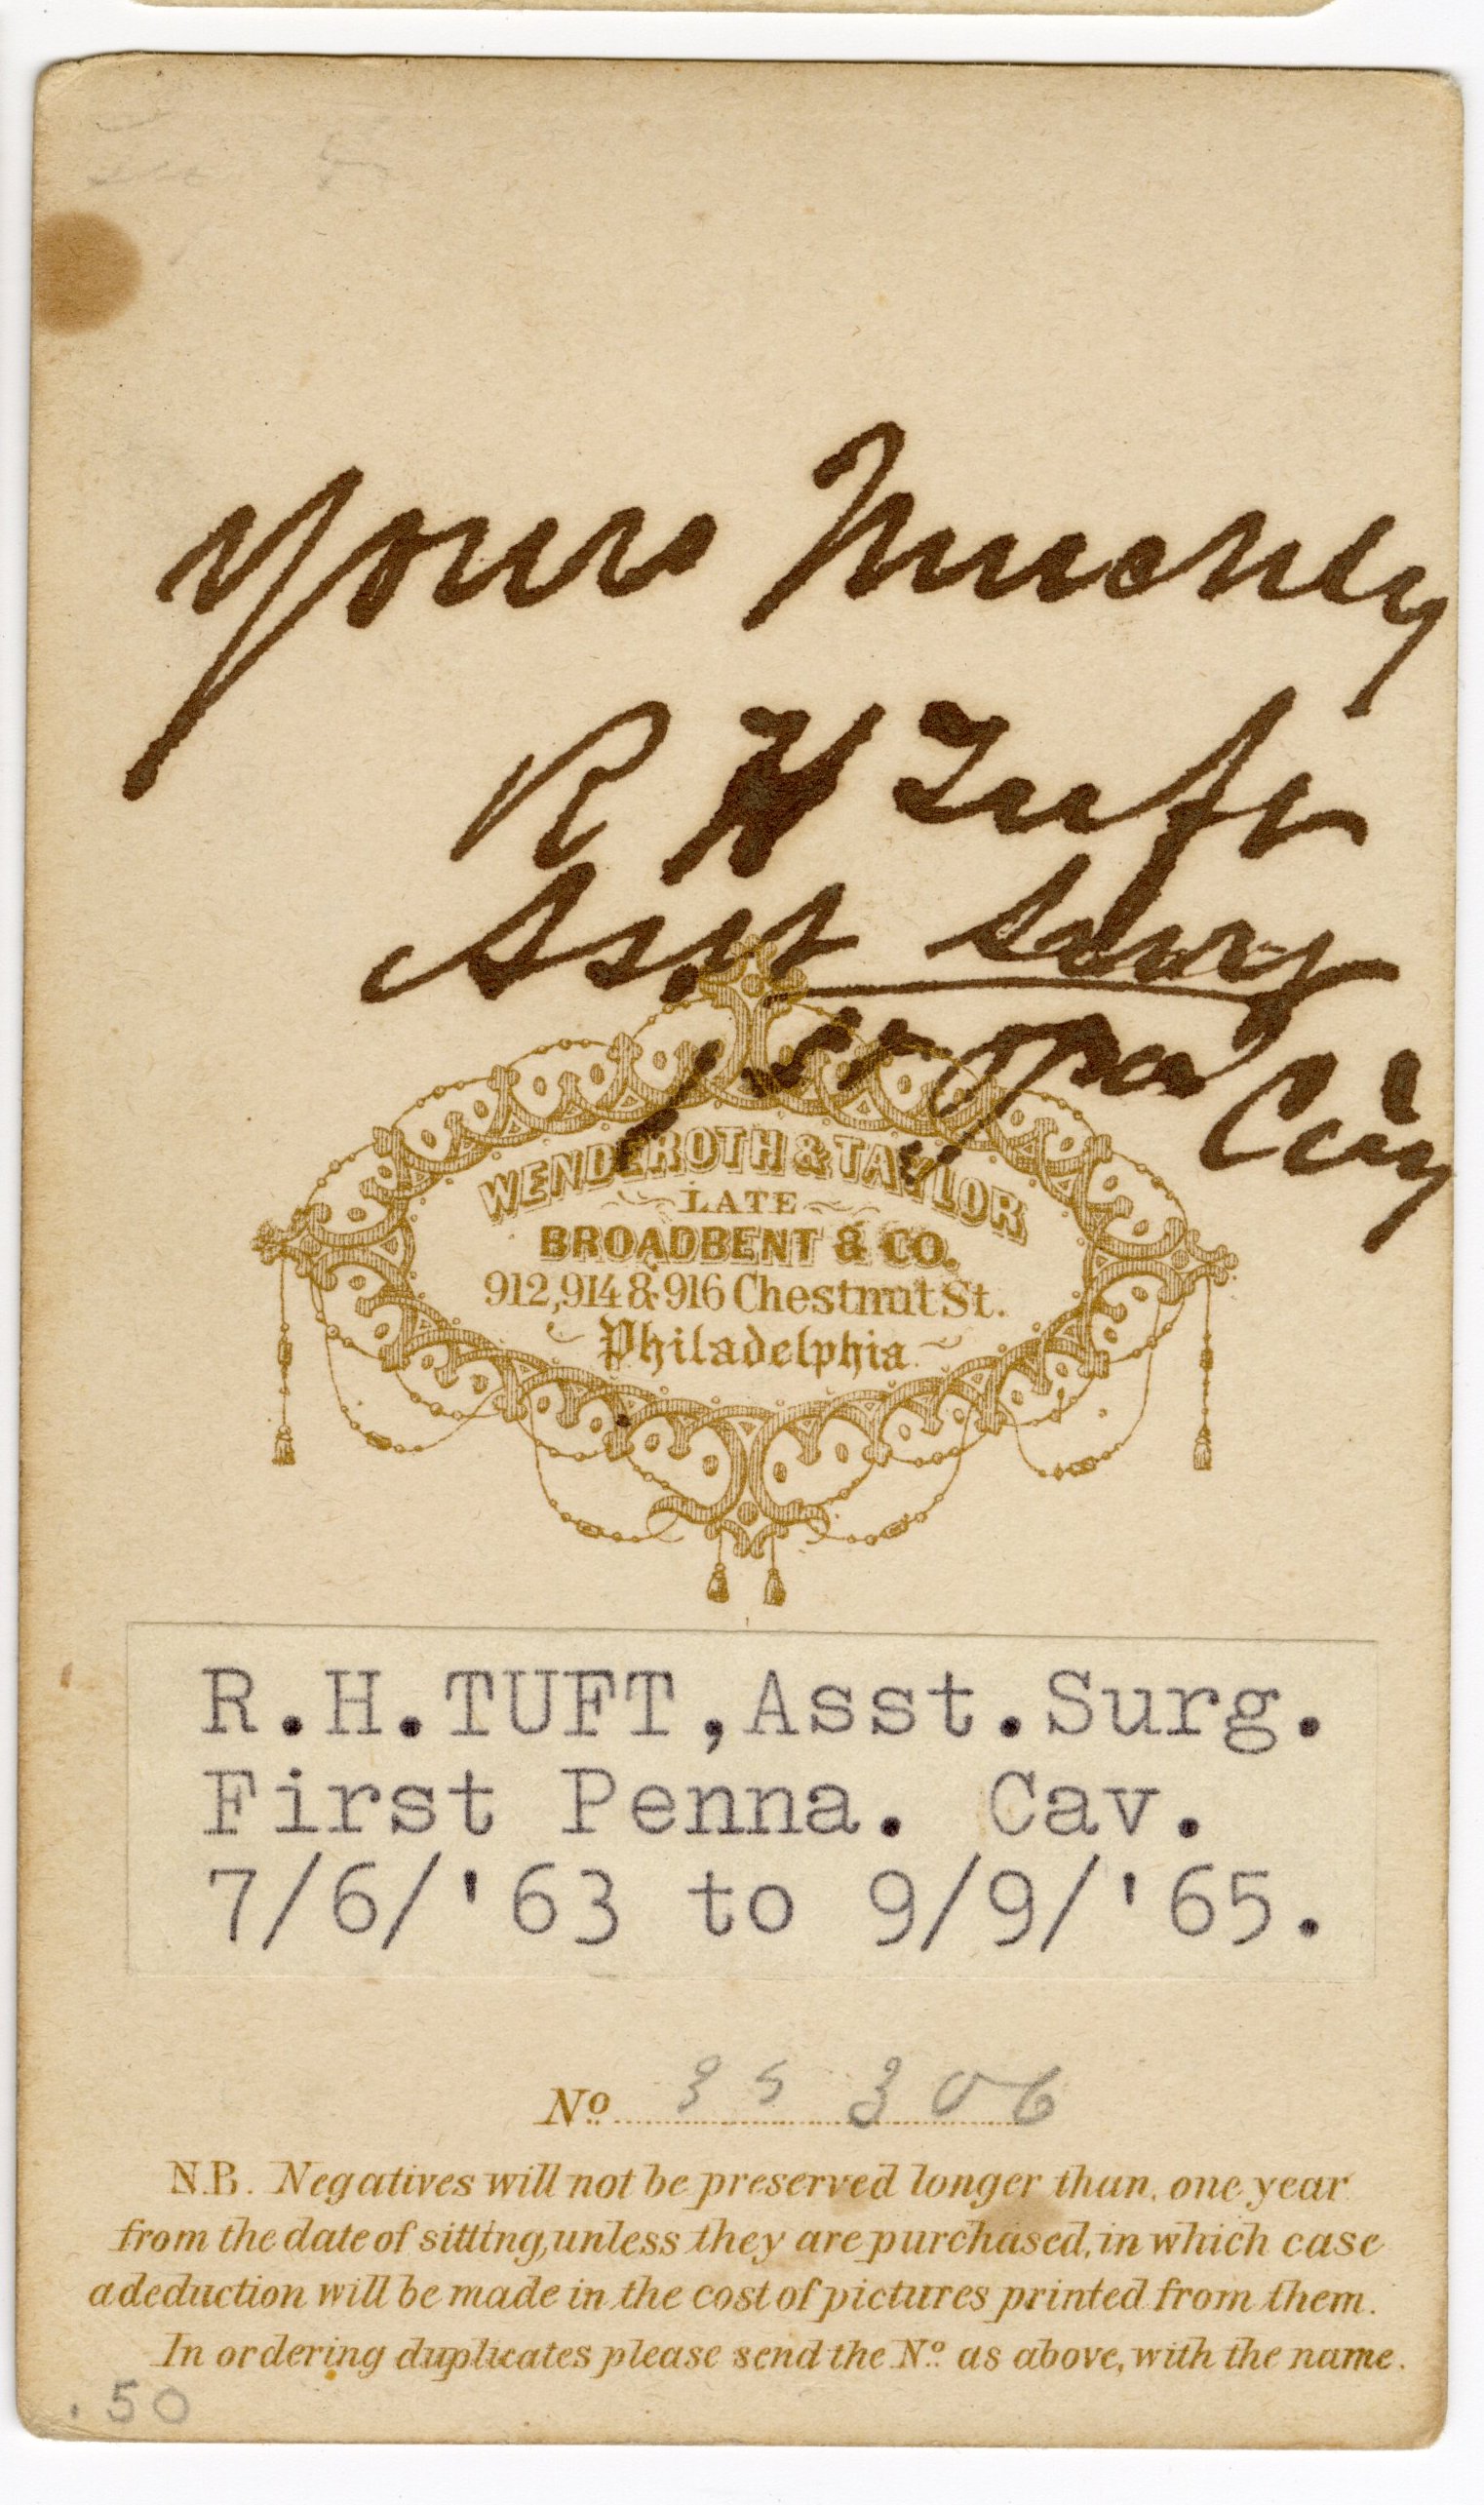 Yours Truely
R H Tuft
Asst Surg
1st Pa Cav
WENDEROTH & TAYLOR
LATE
BROADBENT & CO.
912, 914 & 916 Chestnut St.
Philadelphia
R.H.TUFT,Asst.Surg.
First Penna. Cav.
7/6/'63 to 9/9/'65.
No. 35 306
N.B. Negatives will not be preserved longer than one year
from the date of sitting, unless they are purchased, in which case
a deduction will be made in the cost of pictures printed from them.
In ordering duplicates please send the No. as above, with the name.
.50